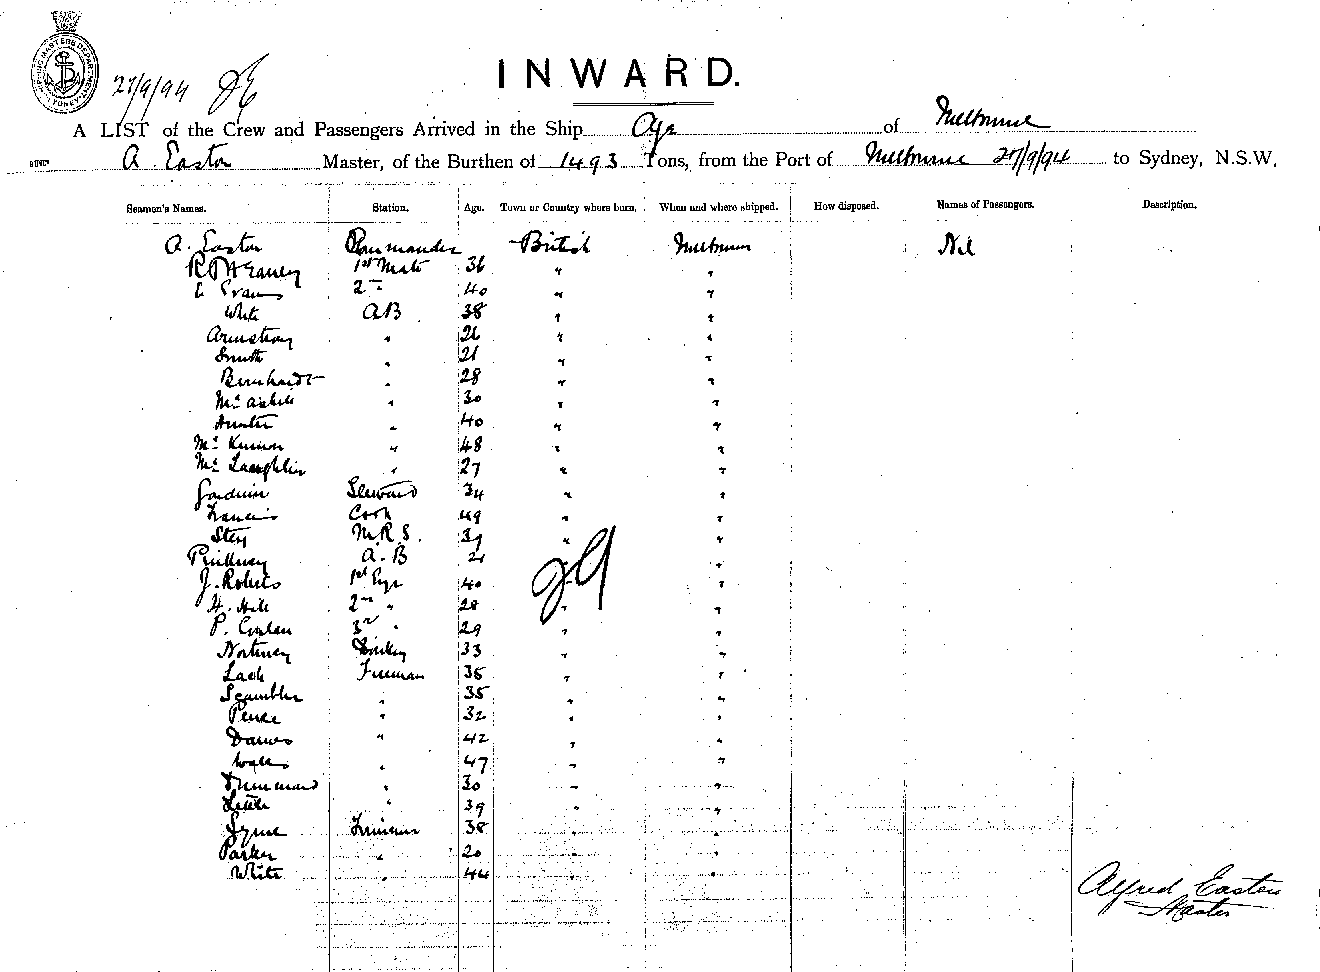 SHIPPING MASTERS DEPARTMENT SYDNEY
27/9/94
INWARD.
A LIST of the Crew and Passengers Arrived in the Ship Ayr of Melbourne
A. Easton Master, of the Burthen of 1493 Tons, from the Port of Melbourne 27/9/94 to Sydney, N.S.W.
Seaman's Names. Station. Age. Town or Country where born. When and where shipped. How disposed. Names of Passengers. Description.
A. Easton Commander British Melbourne Nil
1st Mate 36 " "
Evans 2nd 40 " "
White AB 38 " "
Armstrong " 26 " "
Smith " 21 " "
Bernhardt " 28 " "
Mc " 30 " "
Hunter " 40 " "
Mc Kinnon " 48 " "
Mc Laughlin " 27 " "
Steward 34 " "
Francis Cook 49 " "
M.R.S. " "
A.B " "
J. Roberts 1st Engr 40 " "
H. Hill 2nd " 28 " "
P. 3rd " 29 " "
Donkey 33 " "
Fireman " "
Scambler " 35 " "
" 32 " "
Davies " 42 " "
" 47 " "
" 30 " "
Little " 39 " "
Trimmer 38 " "
Parker " 20 " "
White " 44 " "
Alfred Easton
Master